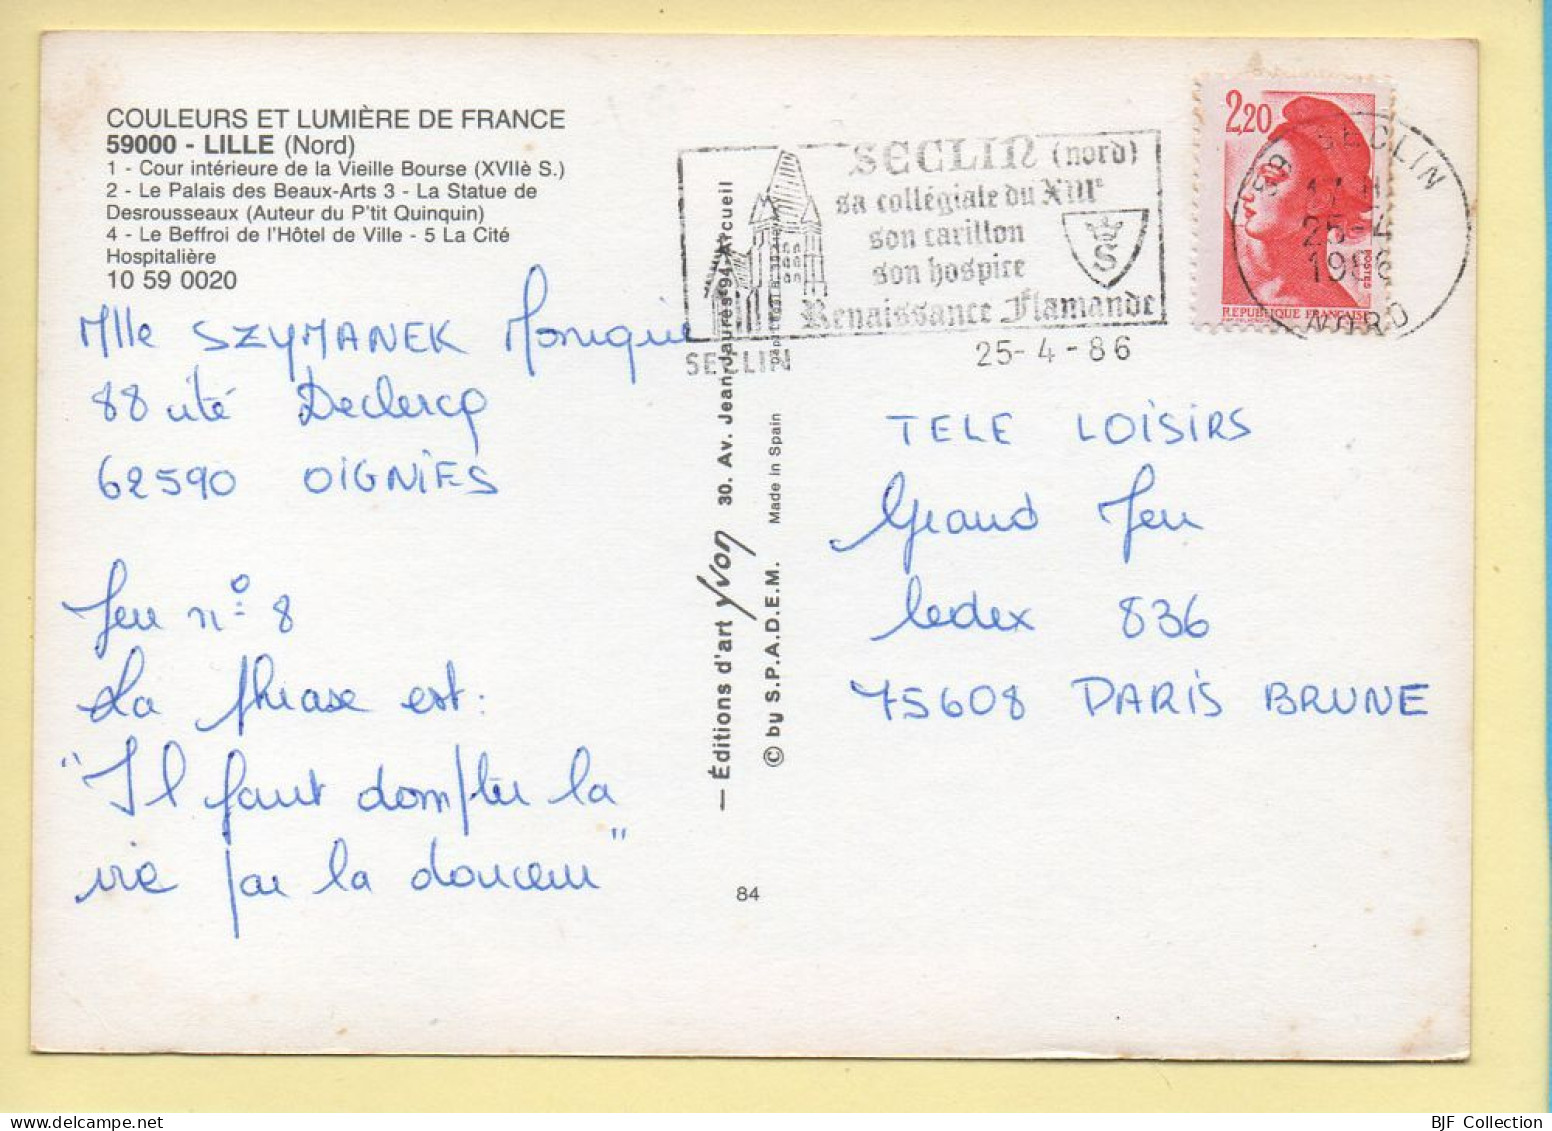 COULEURS ET LUMIÈRE DE FRANCE
59000 - LILLE (Nord)
1 - Cour intérieure de la Vieille Bourse (XVIIè S.)
2 - Le Palais des Beaux-Arts 3 - La Statue de
Desrousseaux (Auteur du P'tit Quinquin)
4 - Le Beffroi de l'Hôtel de Ville - 5 La Cité
Hospitalière
10 59 0020
Mlle SZYMANEK Monique
88 cité Declercq
62590 OIGNIES
Jeu n° 8
La phrase est:
"Il faut dompter la
vie par la douceur"
— Éditions d'art Yvon 30. Av. Jean-Jaurès 94-Arcueil
© by S.P.A.D.E.M. Made in Spain
84
SECLIN (nord)
sa collégiale du XIIIe
son carillon
son hospice
Renaissance Flamande
S
SECLIN
25-4-86
2,20
POSTES
REPUBLIQUE FRANÇAISE
59 SECLIN
17 H
25-4
1986
NORD
TELE LOISIRS
Grand Jeu
Cedex 836
75608 PARIS BRUNE
BJF Collection